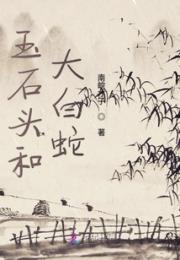 玉石头和
大白蛇
南
◎ 著